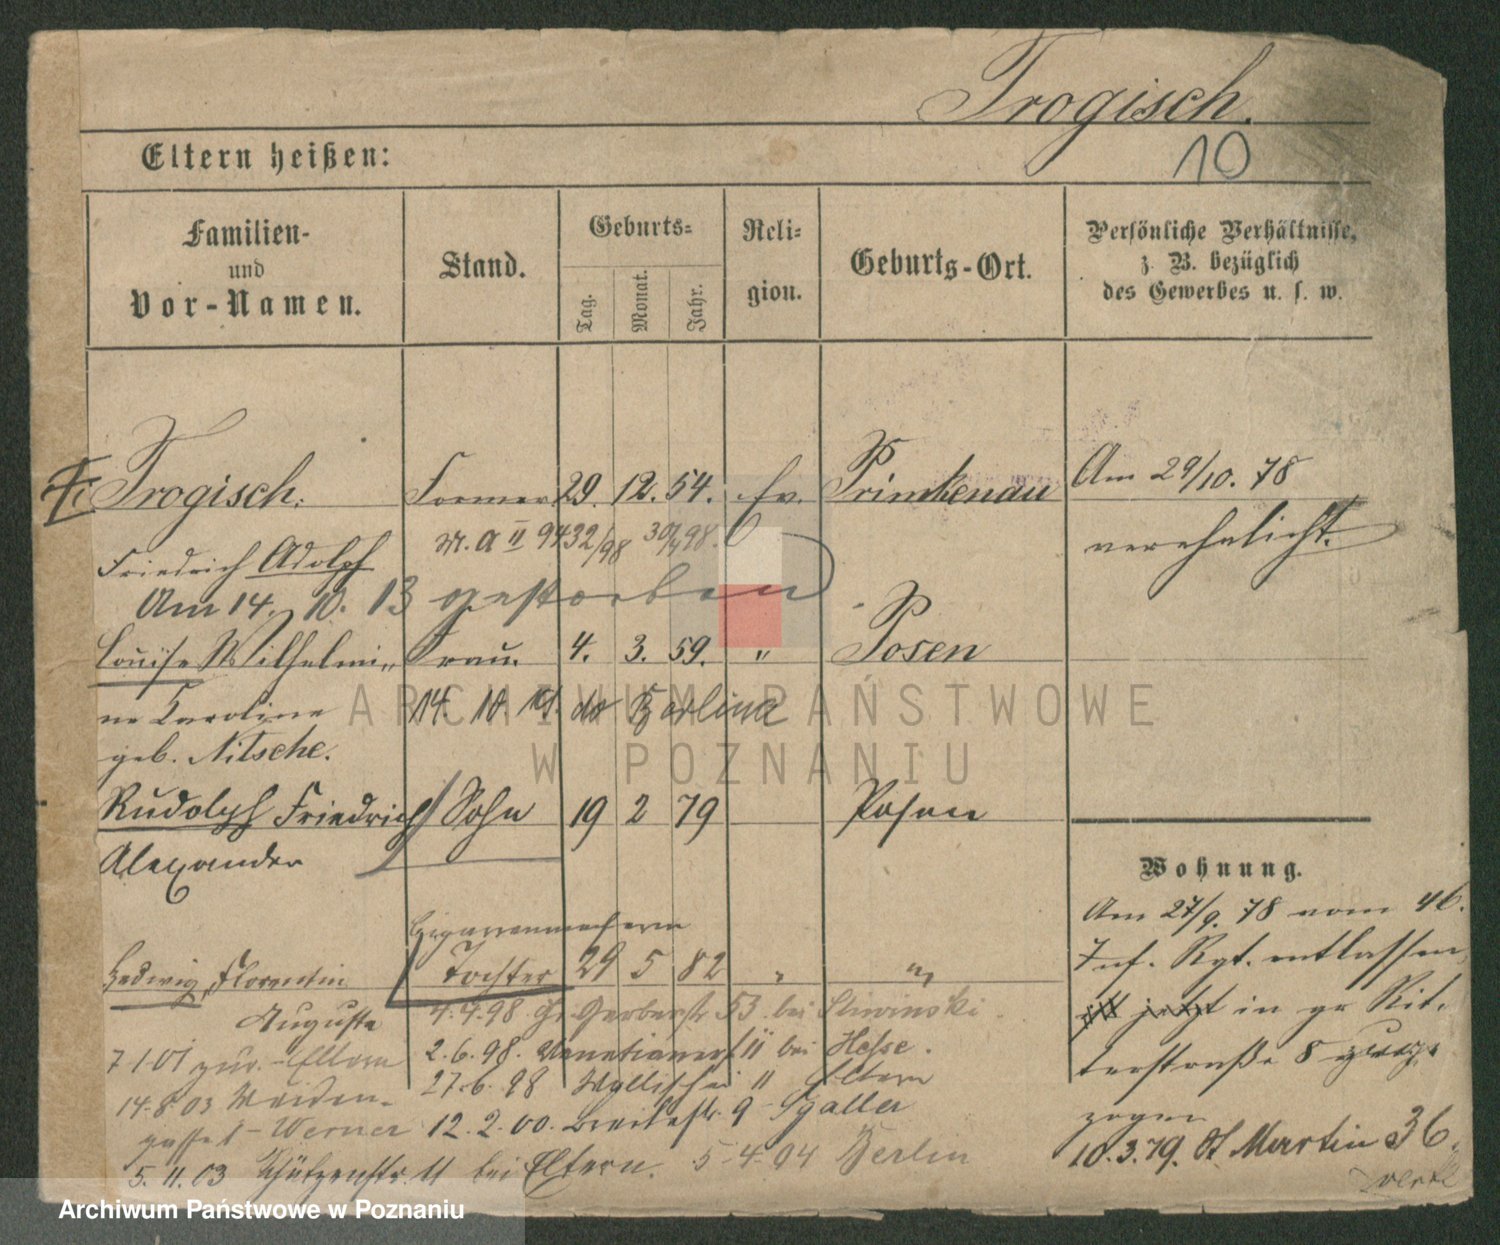 Trogisch.
10
Eltern heißen:
Familien-
und
Vor-Namen.
Stand.
Geburts-
Tag.
Monat.
Jahr.
Reli-
gion.
Geburts-Ort.
Persönliche Verhältnisse,
z. B. bezüglich
des Gewerbes u. s. w.
Trogisch. Former 29. 12. 54. Ev. Primkenau Am 29/10. 78
verehelicht.
M. A II 9432/98
Friedrich Adolph
Am 14. 10. 13 gestorben
Louise Wilhelmi- Frau. 4. 3. 59. " Posen
ne Caroline
geb. Nitsche.
14. 10. do Berlin
Rudolph Friedrich Sohn 19 2 79 Posen
Alexander
Cigarrenmacherin
Hedwig, Florentin Tochter 29 5 82 " "
Auguste
4.4.98. Gr Gerberstr 53 bei Sliwinski
7 1 01 zur. Eltern
2.6.98. Venetianerst 11 bei Hesse.
27.6.98 Wallischei 11 Eltern
14.8.03 Weiden-
gasse 1 - Werner
12.2.00. Breitestr. 9 - Sgaller
5.11.03 Schützenstr. 11 bei Eltern. 5-4-04 Berlin
Wohnung.
Am 27/9. 78 vom 46.
Inf. Rgt. entlassen,
ist jetzt in gr Rit-
terstraße 8 zuge-
zogen
10.3.79. St Martin 36.
Archiwum Państwowe
w Poznaniu
Archiwum Państwowe w Poznaniu